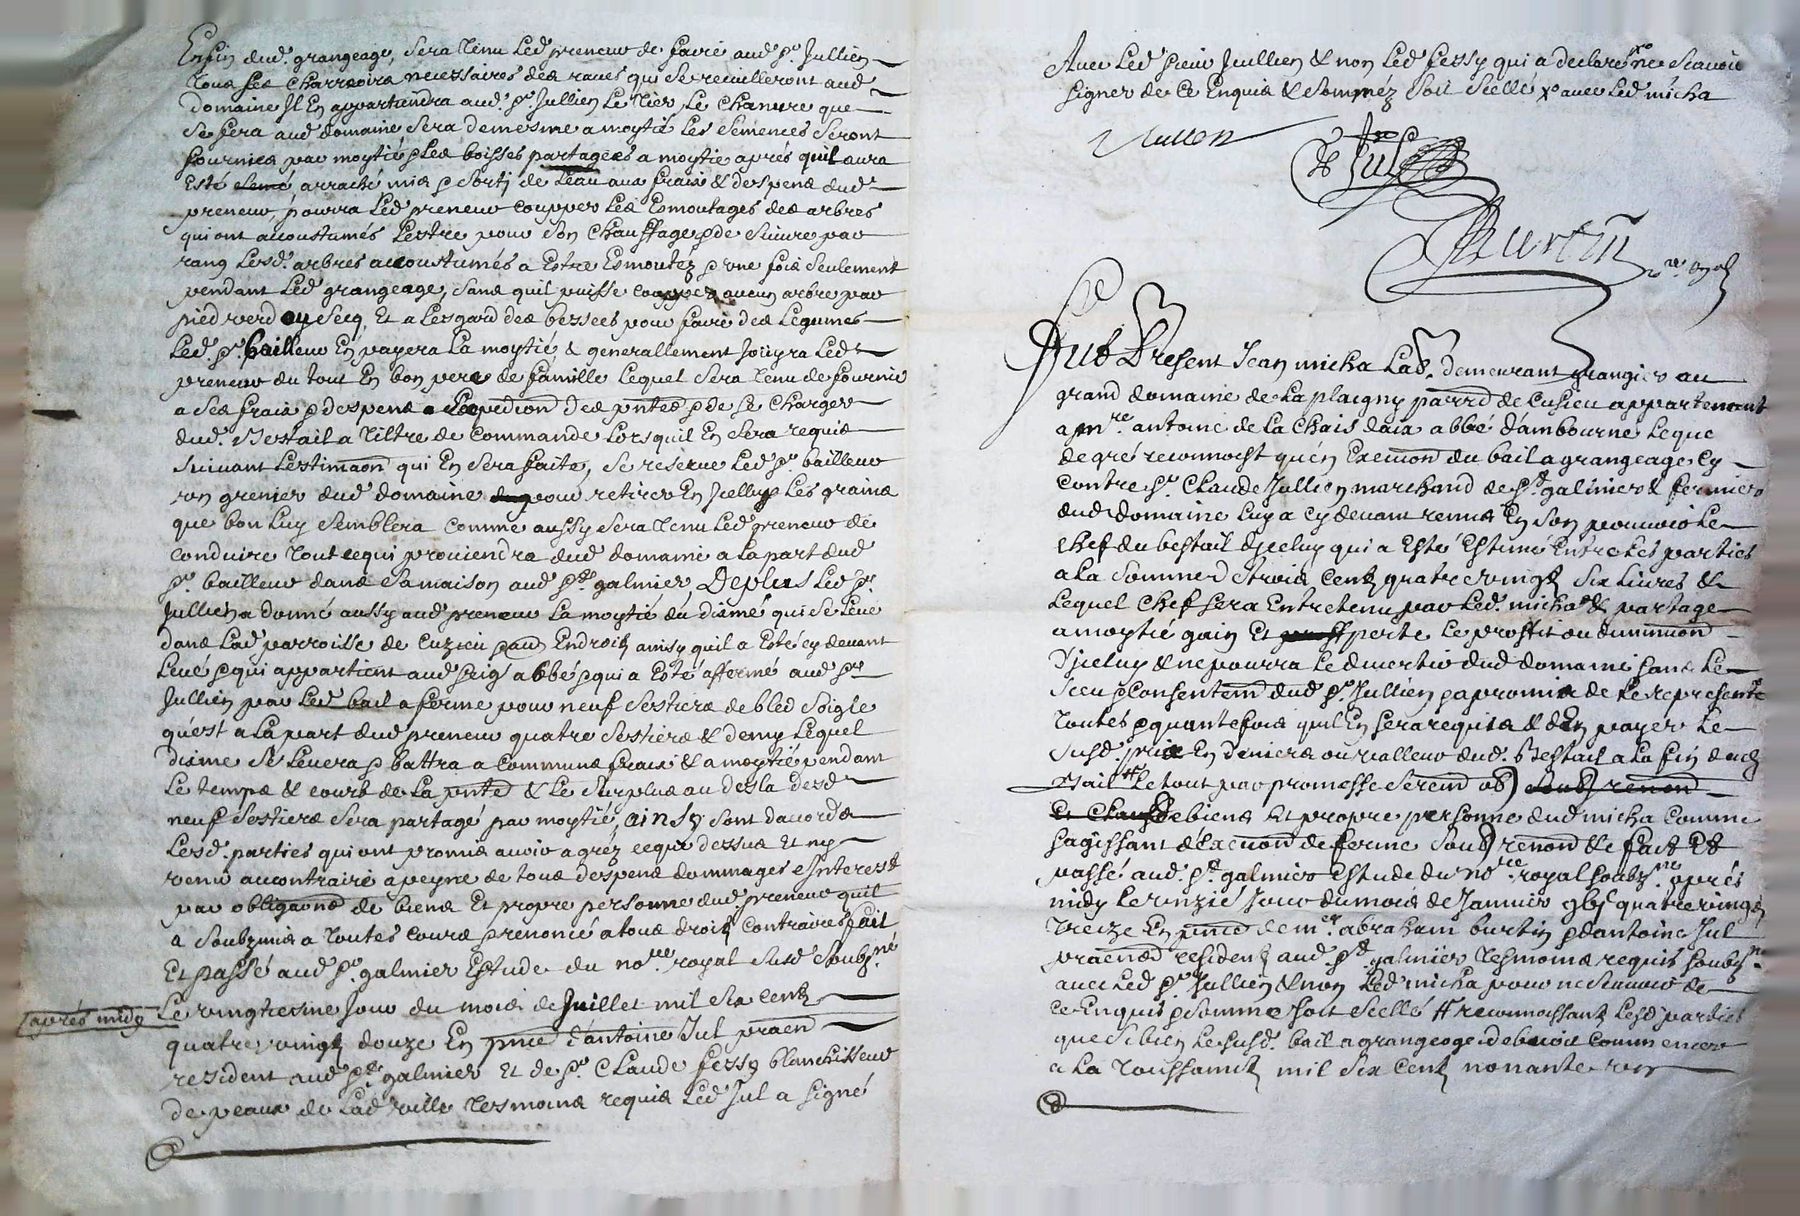 Enfin dud. grangeage, sera tenu Led preneur de faire aud sr Jullien
tous Les charrois necessaires des raves qui se recuilleront aud
domaine Il En appartiendra aud. sr Jullien Le tier, Le chanvre que
se fera aud domaine sera demesme a moytié Les semences seront
fournies par moytié & Les boisses partagées a moytie aprés quil aura
Esté arraché mis & sorti de Leau aux fraix & despens dud
preneur, pourra Led preneur coupper Les Esmoutages des arbres
qui ont accoustumés Lestre pour son chauffage & de suivre par
rang Lesd. arbres accoustumés a Estre Esmoutez & une fois seulement
pendant Led grangeage, sans quil puisse coupper aucun arbre par
pied verd ou secq, Et a Lesgard des bessées pour faire des Legumes
Led. sr bailleur En payera La moytié & generallement Joüyra Led
preneur du tout En bon pere de famille Lequel sera tenu de fournir
a ses fraix & despens Lexpedion des pntes & de se charger
dud. Bestail a tiltre de commande Lorsquil En sera requis
suivant Lestimaon qui En sera faite, se reserve Led sr bailleur
un grenier dud domaine pour retirer En Jcelluy Les grains
que bon Luy semblera comme aussy sera tenu Led preneur de
conduire tout cequi proviendra dud domaine a La part dud
sr bailleur dans sa maison aud St galmier, Deplus Led sr
Jullien a donné aussy aud preneur La moytié du disme qui se Leve
dans Lad parroisse de Cuzieu & aud Endroit ainsy quil a Esté cy devant
Levé & qui appartient aud seigr abbé & qui a Esté affermé aud sr
Jullien par Led bail a ferme pour neuf sestiers de bled soigle
quest a La part dud preneur quatre sestiers & demy Lequel
disme se Levera & battra a communs fraix & a moytié pendant
Le temps & cours de La pnte & Le surplus au desla desd
neuf sestiers sera partagé par moytié, ainsy sont daccord
Lesd. parties qui ont promis avoir agréz cequi dessus Et ny
venir aucontraire a peyne de tous despens dommages & Interest
par obligaons de biens Et propre personne dud preneur quil
a soubzmis a toutes cours & renoncé a tous droits contraires fait
Et passé aud St galmier Estude du nore royal susd soubzné
Le vingtiesme Jour du mois de Juillet mil six cent
aprés midy
quatre vingt douze En pnce dantoine Jul praen
resident aud St galmier Et de sr Claude fessy blanchisseur
de peaux de Lad ville tesmoins requis Led Jul a signé
Avec Led sieur Jullien & non Led fessy qui a declaré ne scavoir
signer de ce Enquis & sommé soit scellé avec Led micha
Jullien
Jul
Burtin nore royal
Sut Present Jean micha Lab. demeurant grangier au
grand domaine de La plaigny parrd de Cusieu appartenant
a mre antoine de La Chais daix abbé dambourné Leque
de gré reconnoist quén Execuon du bail a grangeage cy
contre sr Claude Jullien marchand de St galmier & fermier
dud domaine Luy a cy devant remis En son pouvoir Le
chef du bestail djceluy qui a Esté Estimé Entre Les parties
a La somme de trois cent quatre vingt six Livres &
Lequel chef sera Entretenu par Led. micha & partage
a moytié gain Et perte Le proffit ou diminuon
djceluy & ne pourra Le divertir dud domaine sans Le
sceu & Consentem dud sr Jullien & a promis de Le represente
toutes & quantefois quil En sera requis & dEn payer Le
susd. prix En deniers ou valleur dud. Bestail a La fin dud
Bail # Le tout par promesse serem ob
de biens Et propre personne dud micha comme
sagissant déxecuon de ferme soub renon & fait Et
passé aud. St galmier Estude du nore royal soubzne aprés
midy Le onzié Jour du mois de Janvier gbj quatre vingt
treize En pnce de mre abraham burtin & dantoine Jul
praenes resident aud St galmier tesmoins requis soubzne
avec Led sr Jullien & non Led micha pour ne scavoir de
ce Enquis & somme soit scellé # reconnoissant Lesd parties
que si bien Le susd. bail a grangeage debvoit commencer
a La toussaint mil six cent nonante un